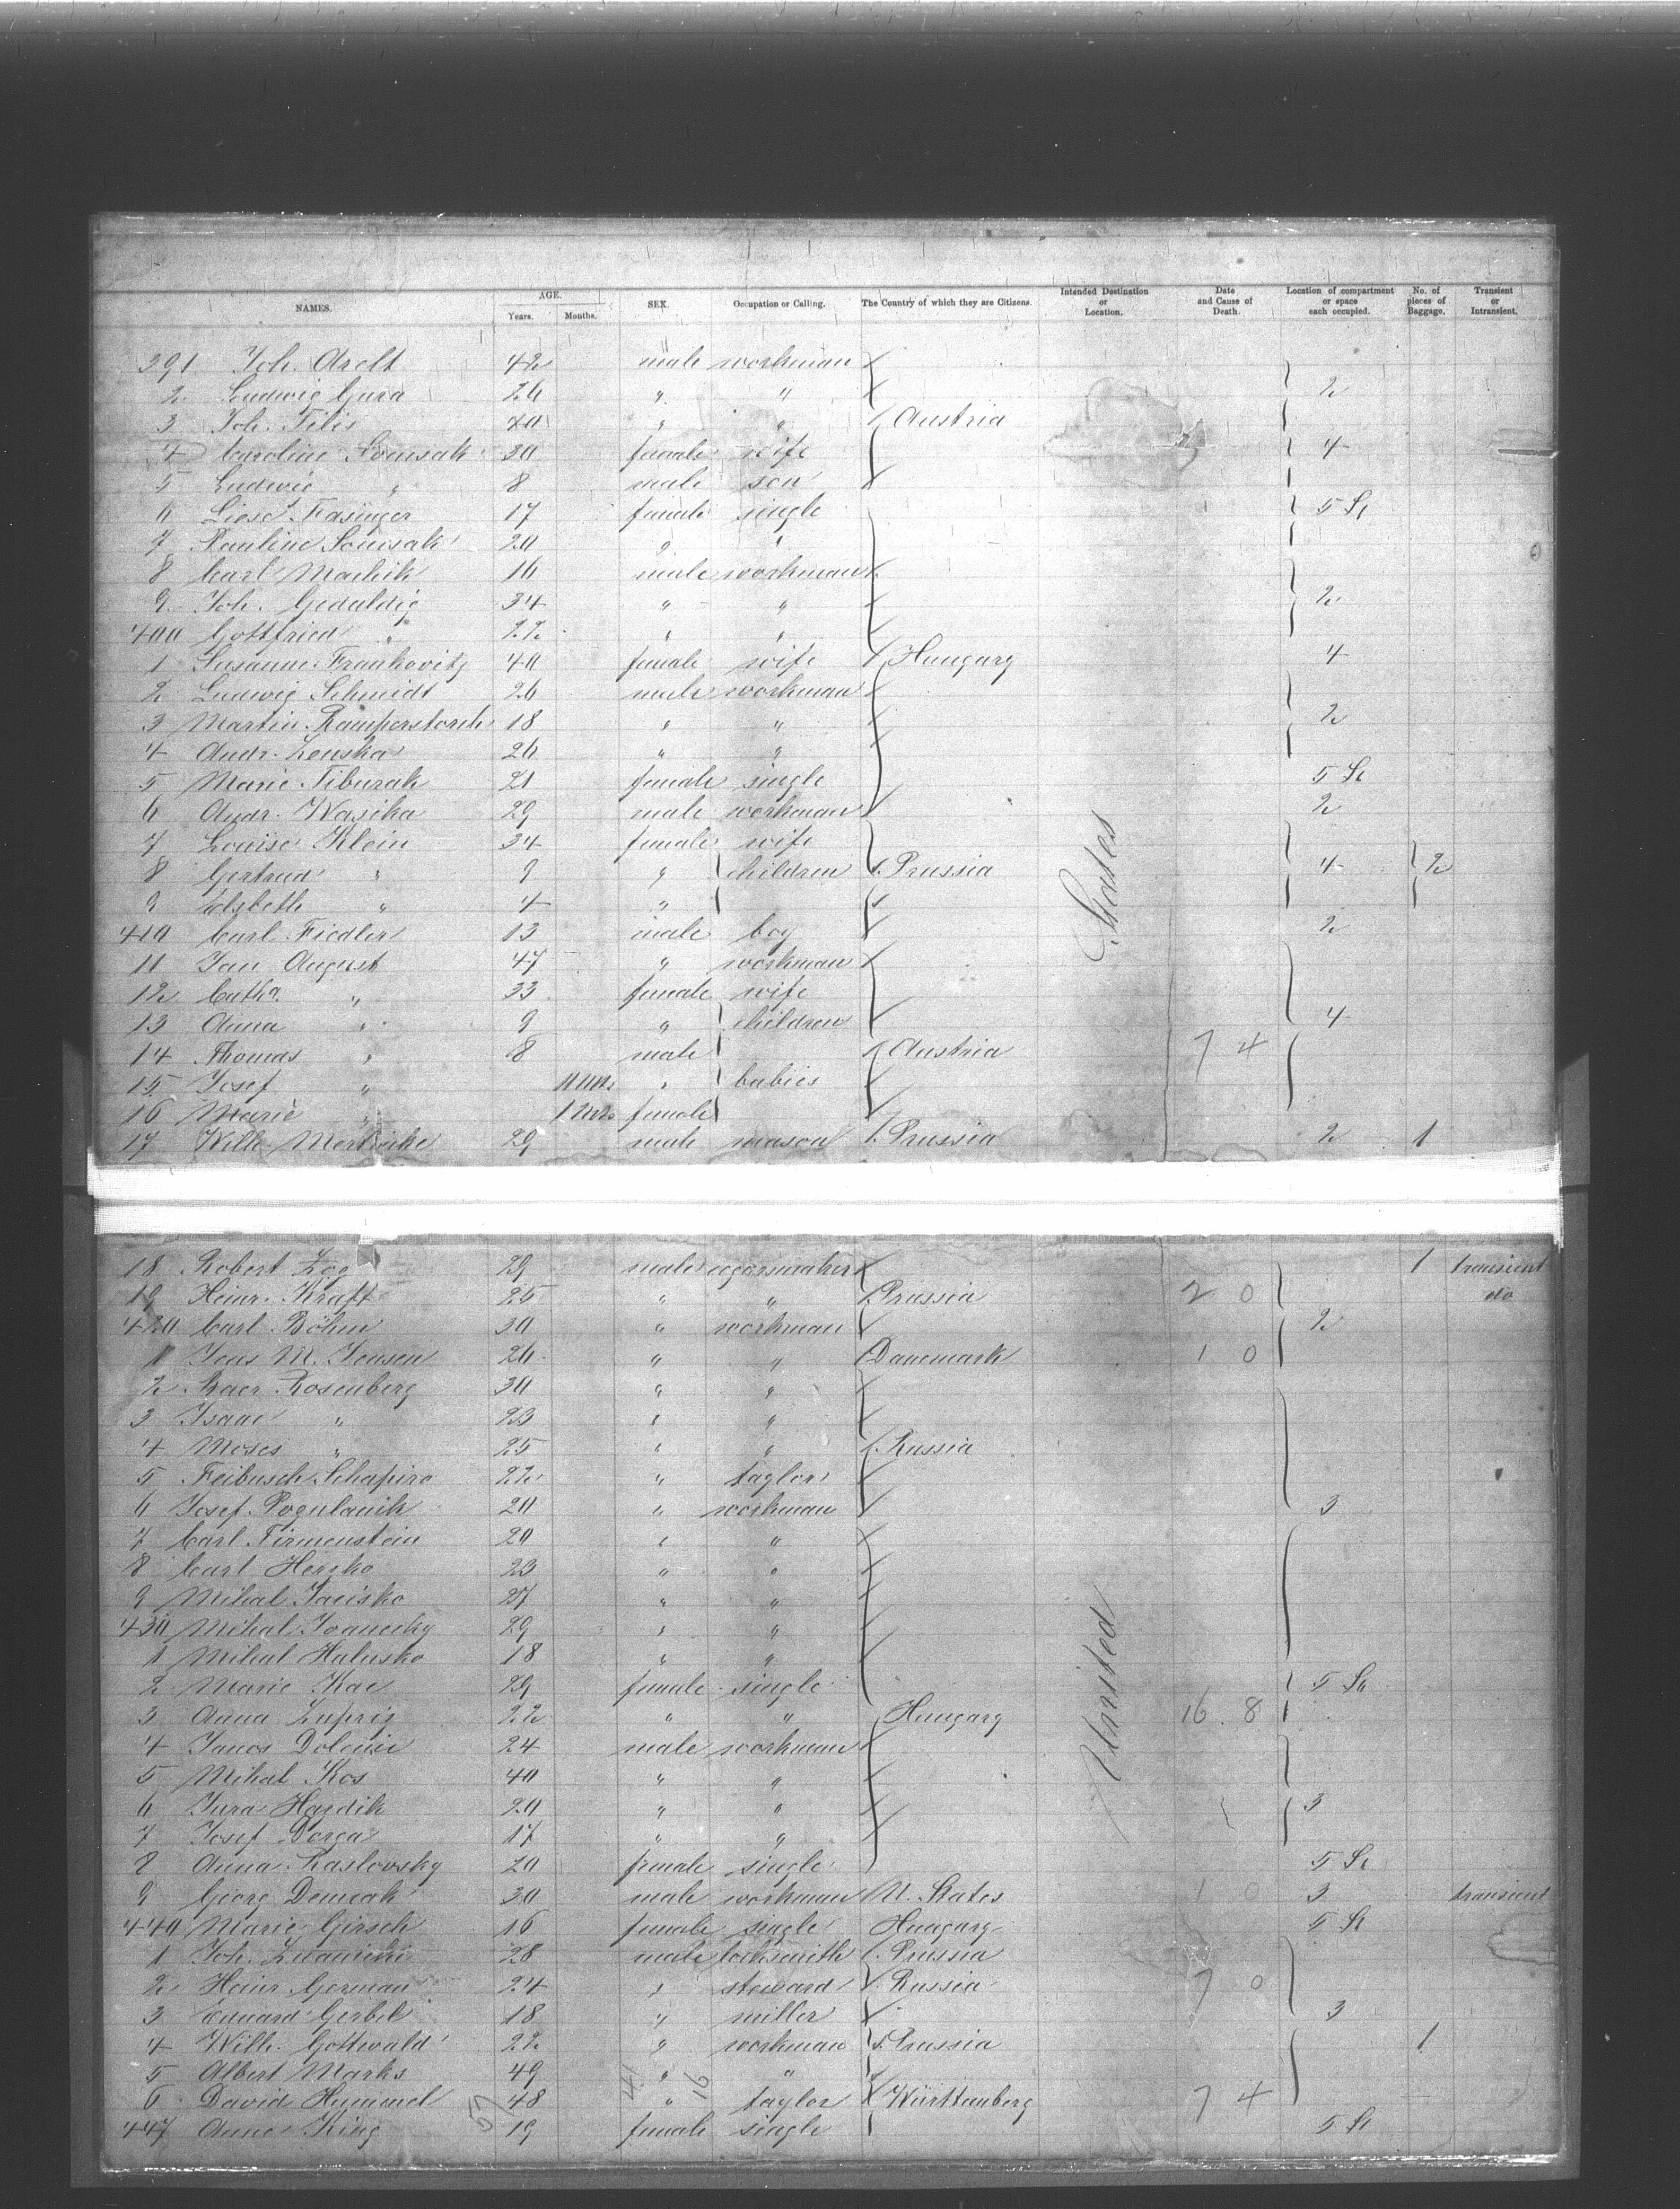 NAMES. AGE. Years. Months. SEX. Occupation or Calling. The Country of which they are Citizens. Intended Destination or Location. Date and Cause of Death. Location of compartment or space each occupied. No. of pieces of Baggage. Transient or Intransient.
391 Joh. Arelt 42 male workman
2 Ludwig Gura 26 " " 2
3 Joh. Filis 40 " " Austria
4 Caroline 30 female wife 4
5 Ludwig " 8 male son
6 Liese Fasinger 17 female single 5 St
7 Pauline 20 " "
8 Carl Machik 16 male workman
9 Joh. Gedaldig 34 " " 2
400 Gottfried " 22 " "
1 Susanne Frankovitz 40 female wife Hungary 4
2 Ludwig Schmidt 26 male workman
3 Martin Ramperstorsh 18 " " 2
4 Andr. Zenska 26 " "
5 Marie Tiburak 21 female single 5 St
6 Andr. Wasika 29 male workman 2
7 Louise Klein 34 female wife
8 Gertrud " 9 " children Prussia 4 2
9 Elsbeth " 4 "
410 Carl Fiedler 13 male boy 2
11 Jan August 47 " workman
12 Cath. " 33 female wife
13 Anna " 9 " children 4
14 Thomas " 8 male Austria 7 4
15 Josef " 11 Mts " babies
16 Marie " 1 Mts female
17 Wilh. 29 male mason Prussia 2 1
States
18 Robert Zog 29 male cigarsmaker 1 transient
19 Heinr. Kraft 25 " " Prussia 2 0 do
420 Carl Böhm 30 " workman 2
1 Jens M. Jensen 26 " " Danemark 1 0
2 Baer Rosenberg 30 " "
3 Isaac " 23 " "
4 Moses " 25 " " Russia
5 Feibusch Schapiro 22 " taylor
6 Josef Pogulanik 20 " workman 3
7 Carl Firmenstein 20 " "
8 Carl Hersko 23 " "
9 Mihal Jacisko 27 " "
430 Mihal Ivancsky 29 " "
1 Mihal Halusko 18 " "
2 Marie Kac 29 female single 5 St
3 Anna Zupris 22 " " Hungary 16 8
4 Janos 24 male workman
5 Mihal Kos 40 " "
6 Jura Hardik 20 " " 3
7 Josef Dorca 17 " "
8 Anna Kaslovsky 20 female single 5 St
9 Georg Demcak 30 male workman U. States 1 0 3 transient
440 Marie Girsch 16 female single Hungary 5 St
1 Joh. 28 male locksmith Prussia
2 Heinr German 24 " steward Russia 7 0
3 Eduard Gerbel 18 " miller 3
4 Wilh. Gottwald 22 " workman Prussia 1
5 Albert Marks 49 " "
6 David Hummel 48 " taylor Württemberg 7 4
447 Anne King 19 female single 5 St
United